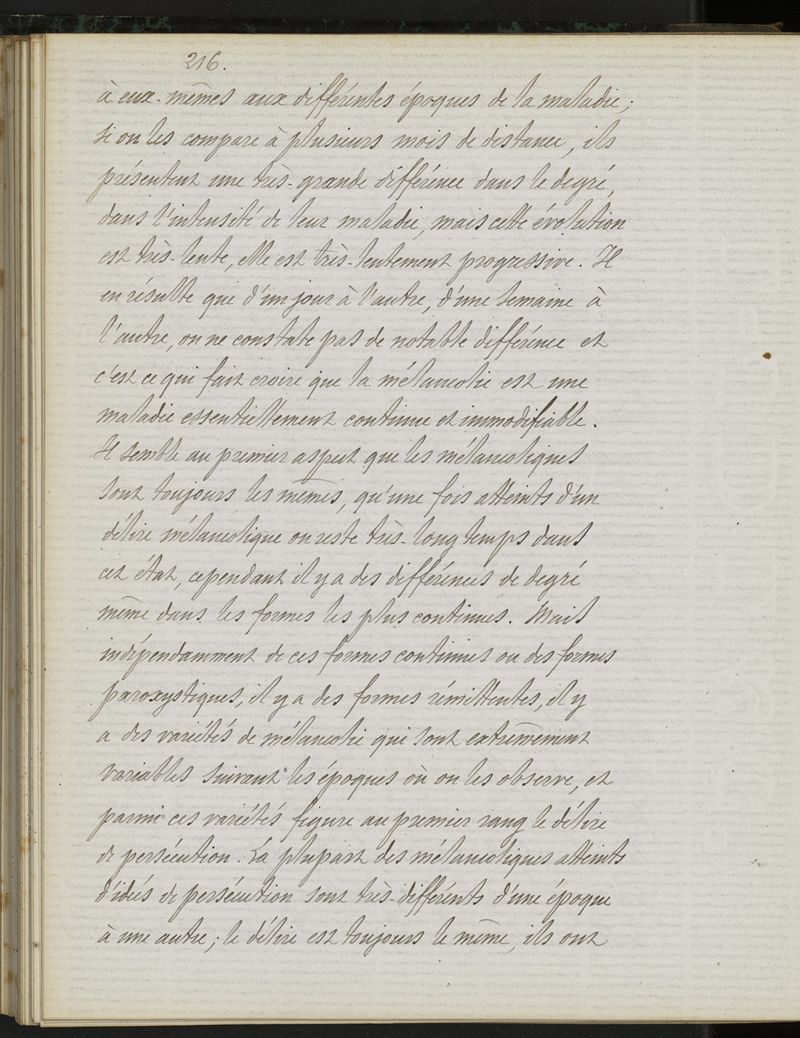 216.
à eux-mêmes aux différentes époques de la maladie;
si on les compare à plusieurs mois de distance, ils
présentent une très-grande différence dans le degré,
dans l'intensité de leur maladie, mais cette évolution
est très-lente, elle est très-lentement progressive. Il
en résulte que d'un jour à l'autre, d'une semaine à
l'autre, on ne constate pas de notable différence et
c'est ce qui fait croire que la mélancolie est une
maladie essentiellement continue et immodifiable.
Il semble au premier aspect que les mélancoliques
sont toujours les mêmes, qu'une fois atteints d'un
délire mélancolique on reste très-longtemps dans
cet état, cependant il y a des différences de degré
même dans les formes les plus continues. Mais
indépendamment de ces formes continues ou des formes
paroxystiques, il y a des formes rémittentes, il y
a des variétés de mélancolie qui sont extrêmement
variables suivant les époques où on les observe, et
parmi ces variétés figure au premier rang le délire
de persécution. La plupart des mélancoliques atteints
d'idées de persécution sont très-différents d'une époque
à une autre; le délire est toujours le même, ils ont